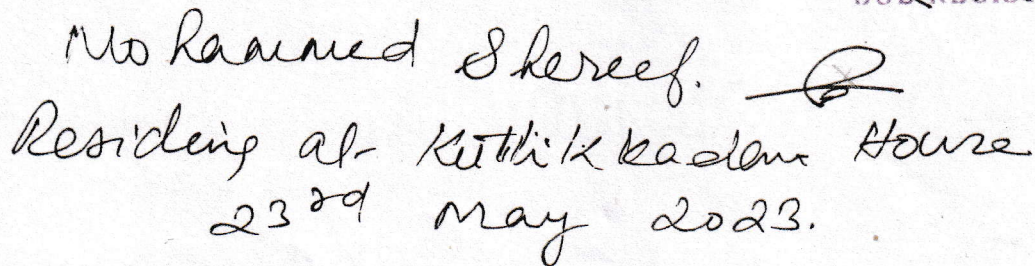 Mohammed Shereef.
Residing at Kuttikkadan House
23rd May 2023.